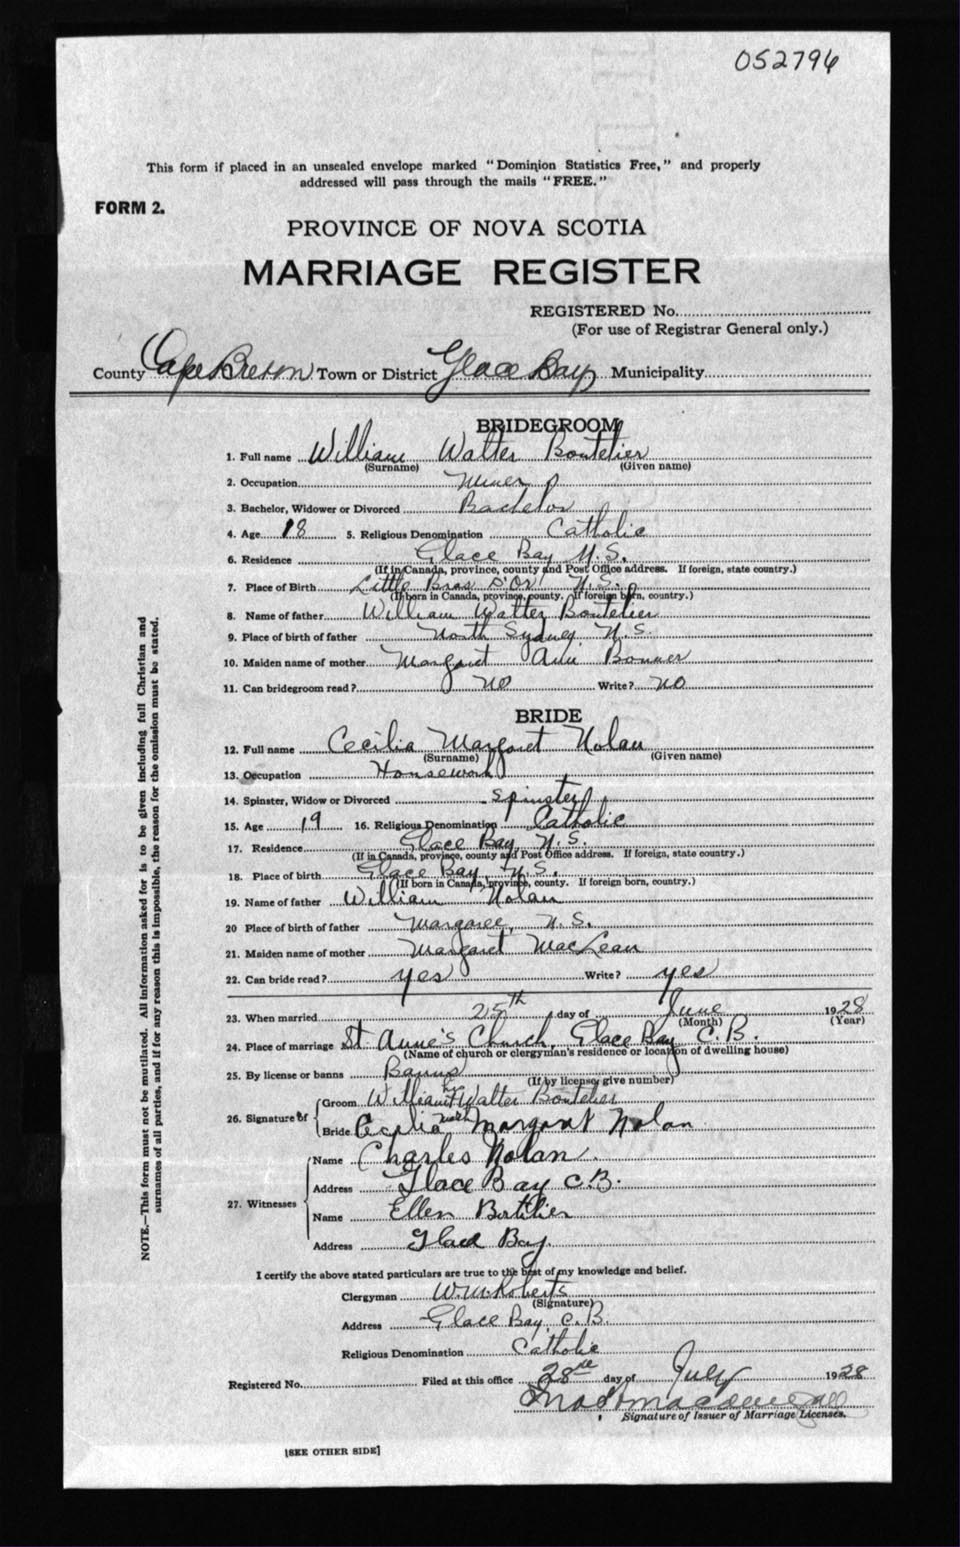 052794
This form if placed in an unsealed envelope marked "Dominion Statistics Free," and properly
addressed will pass through the mails "FREE."
FORM 2.
PROVINCE OF NOVA SCOTIA
MARRIAGE REGISTER
REGISTERED No.
(For use of Registrar General only.)
County Cape Breton Town or District Glace Bay Municipality
BRIDEGROOM
1. Full name William Walter Boutelier
(Surname) (Given name)
2. Occupation Miner
3. Bachelor, Widower or Divorced Bachelor
4. Age 18 5. Religious Denomination Catholic
6. Residence Glace Bay N.S.
(If in Canada, province, county and Post Office address. If foreign, state country.)
7. Place of Birth Little Bras D'Or N.S.
(If born in Canada, province, county. If foreign born, country.)
8. Name of father William Walter Boutelier
9. Place of birth of father North Sydney N.S.
10. Maiden name of mother Margaret Ann Bonner
11. Can bridegroom read? no Write? no
BRIDE
12. Full name Cecilia Margaret Nolan
(Surname) (Given name)
13. Occupation Housework
14. Spinster, Widow or Divorced Spinster
15. Age 19 16. Religious Denomination Catholic
17. Residence Glace Bay, N.S.
(If in Canada, province, county and Post Office address. If foreign, state country.)
18. Place of birth Glace Bay, N.S.
(If born in Canada, province, county. If foreign born, country.)
19. Name of father William Nolan
20 Place of birth of father Margaree, N.S.
21. Maiden name of mother Margaret MacLean
22. Can bride read? yes Write? yes
23. When married 25th day of June 1928
(Month) (Year)
24. Place of marriage St. Anne's Church, Glace Bay C.B.
(Name of church or clergyman's residence or location of dwelling house)
25. By license or banns Banns
(If by license, give number)
26. Signature of Groom William Walter Boutelier
Bride Cecilia Margaret Nolan
27. Witnesses
Name Charles Nolan
Address Glace Bay C.B.
Name Ellen
Address Glace Bay
I certify the above stated particulars are true to the best of my knowledge and belief.
Clergyman W. Roberts
(Signature)
Address Glace Bay, C.B.
Religious Denomination Catholic
Registered No. Filed at this office 28 day of July 1928
Signature of Issuer of Marriage Licenses.
[SEE OTHER SIDE]
NOTE.—This form must not be mutilated. All information asked for is to be given including full Christian and
surnames of all parties, and if for any reason this is impossible, the reason for the omission must be stated.